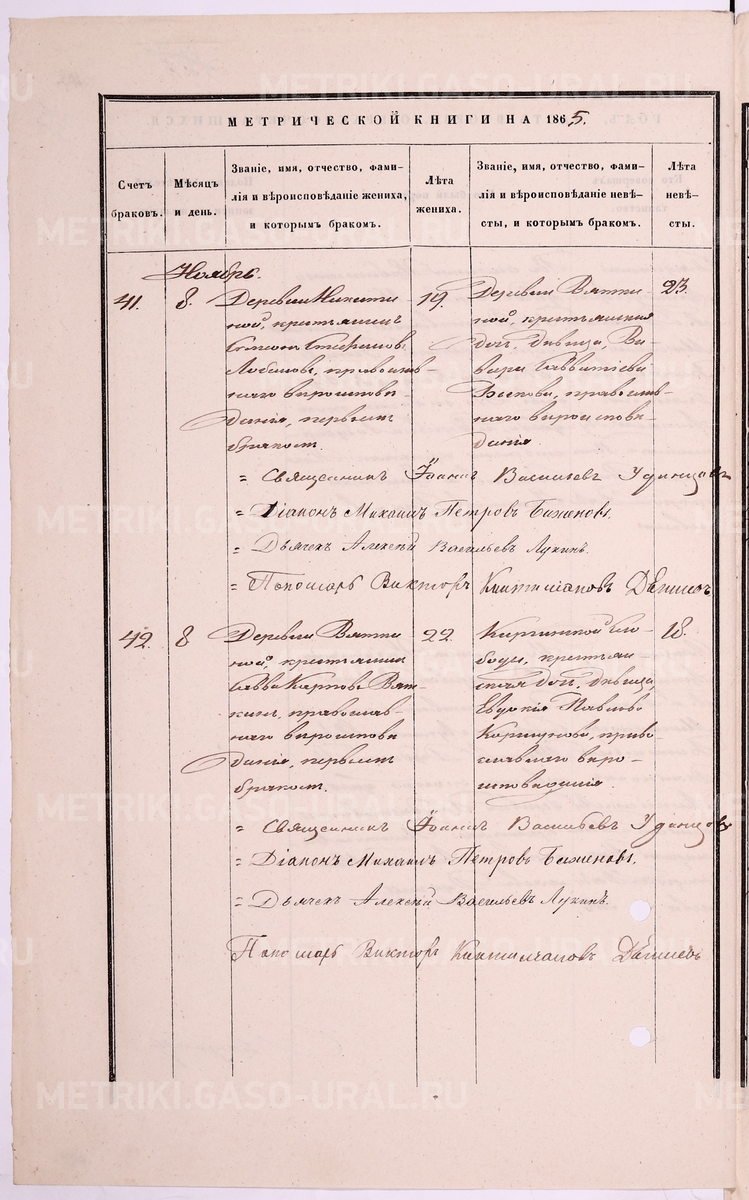 МЕТРИЧЕСКОЙ КНИГИ НА 1865.
Счетъ браковъ.
Мѣсяцъ и день.
Званіе, имя, отчество, фами-
лія и вѣроисповѣданіе жениха,
и которымъ бракомъ.
Лѣта жениха.
Званіе, имя, отчество, фами-
лія и вѣроисповѣданіе невѣ-
сты, и которымъ бракомъ.
Лѣта невѣ-
сты.
Ноябрь.
41. 8.
Деревни Никити
ной, крестьянинъ
Стефановъ
Лобановъ, православ-
наго вѣроисповѣ
данія, первымъ
бракомъ.
19.
Деревни Вятки
ной, крестьянская
доч. дѣвица, Ва
вара Савватіева
православ-
наго вѣроисповѣ
данія.
23.
= Священникъ Іоаннъ Васильевъ Удинцовъ
= Діаконъ Михаилъ Петровъ Баженовъ.
= Дьячекъ Алексѣй Васильевъ Лукинъ.
= Пономарь Викторъ
42. 8
Деревни Вятки
ной, крестьянинъ
Савва Карповъ Вят-
кинъ, православ-
наго вѣроисповѣ
данія, первымъ
бракомъ.
22.
Киргинской сло-
боды, крестьян-
ская доч. дѣвица,
Евдокія Павлова
право-
славнаго вѣро-
исповѣданія.
18.
= Священникъ Іоаннъ Васильевъ Удинцовъ
= Діаконъ Михаилъ Петровъ Баженовъ.
= Дьячекъ Алексѣй Васильевъ Лукинъ.
Пономарь Викторъ
METRIKI.GASO-URAL.RU